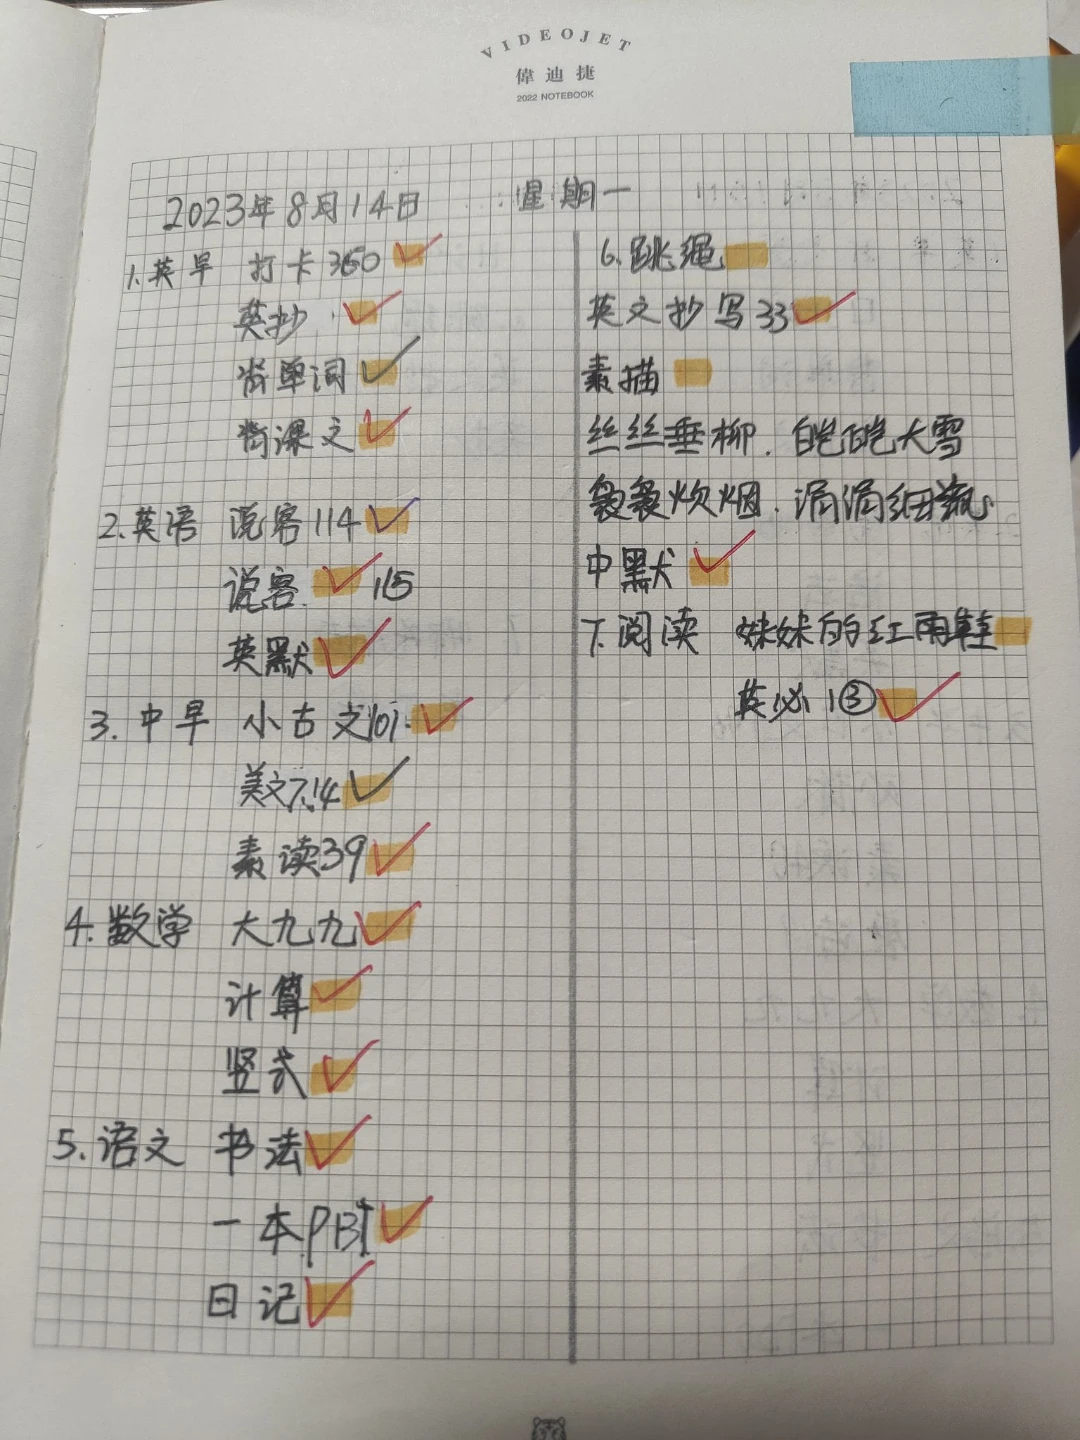 VIDEOJET
偉迪捷
2022 NOTEBOOK
2023年8月14日 星期一
1.英早 打卡360
英抄
背单词
背课文
2.英语 说客114
说客 115
英默
3.中早 小古文101
美文7.14
素读39
4.数学 大九九
计算
竖式
5.语文 书法
一本P81
日记
6.跳绳
英文抄写33
素描
丝丝垂柳.皑皑大雪
袅袅炊烟.涓涓细流
中默
7.阅读 妹妹的红雨鞋
英必1③